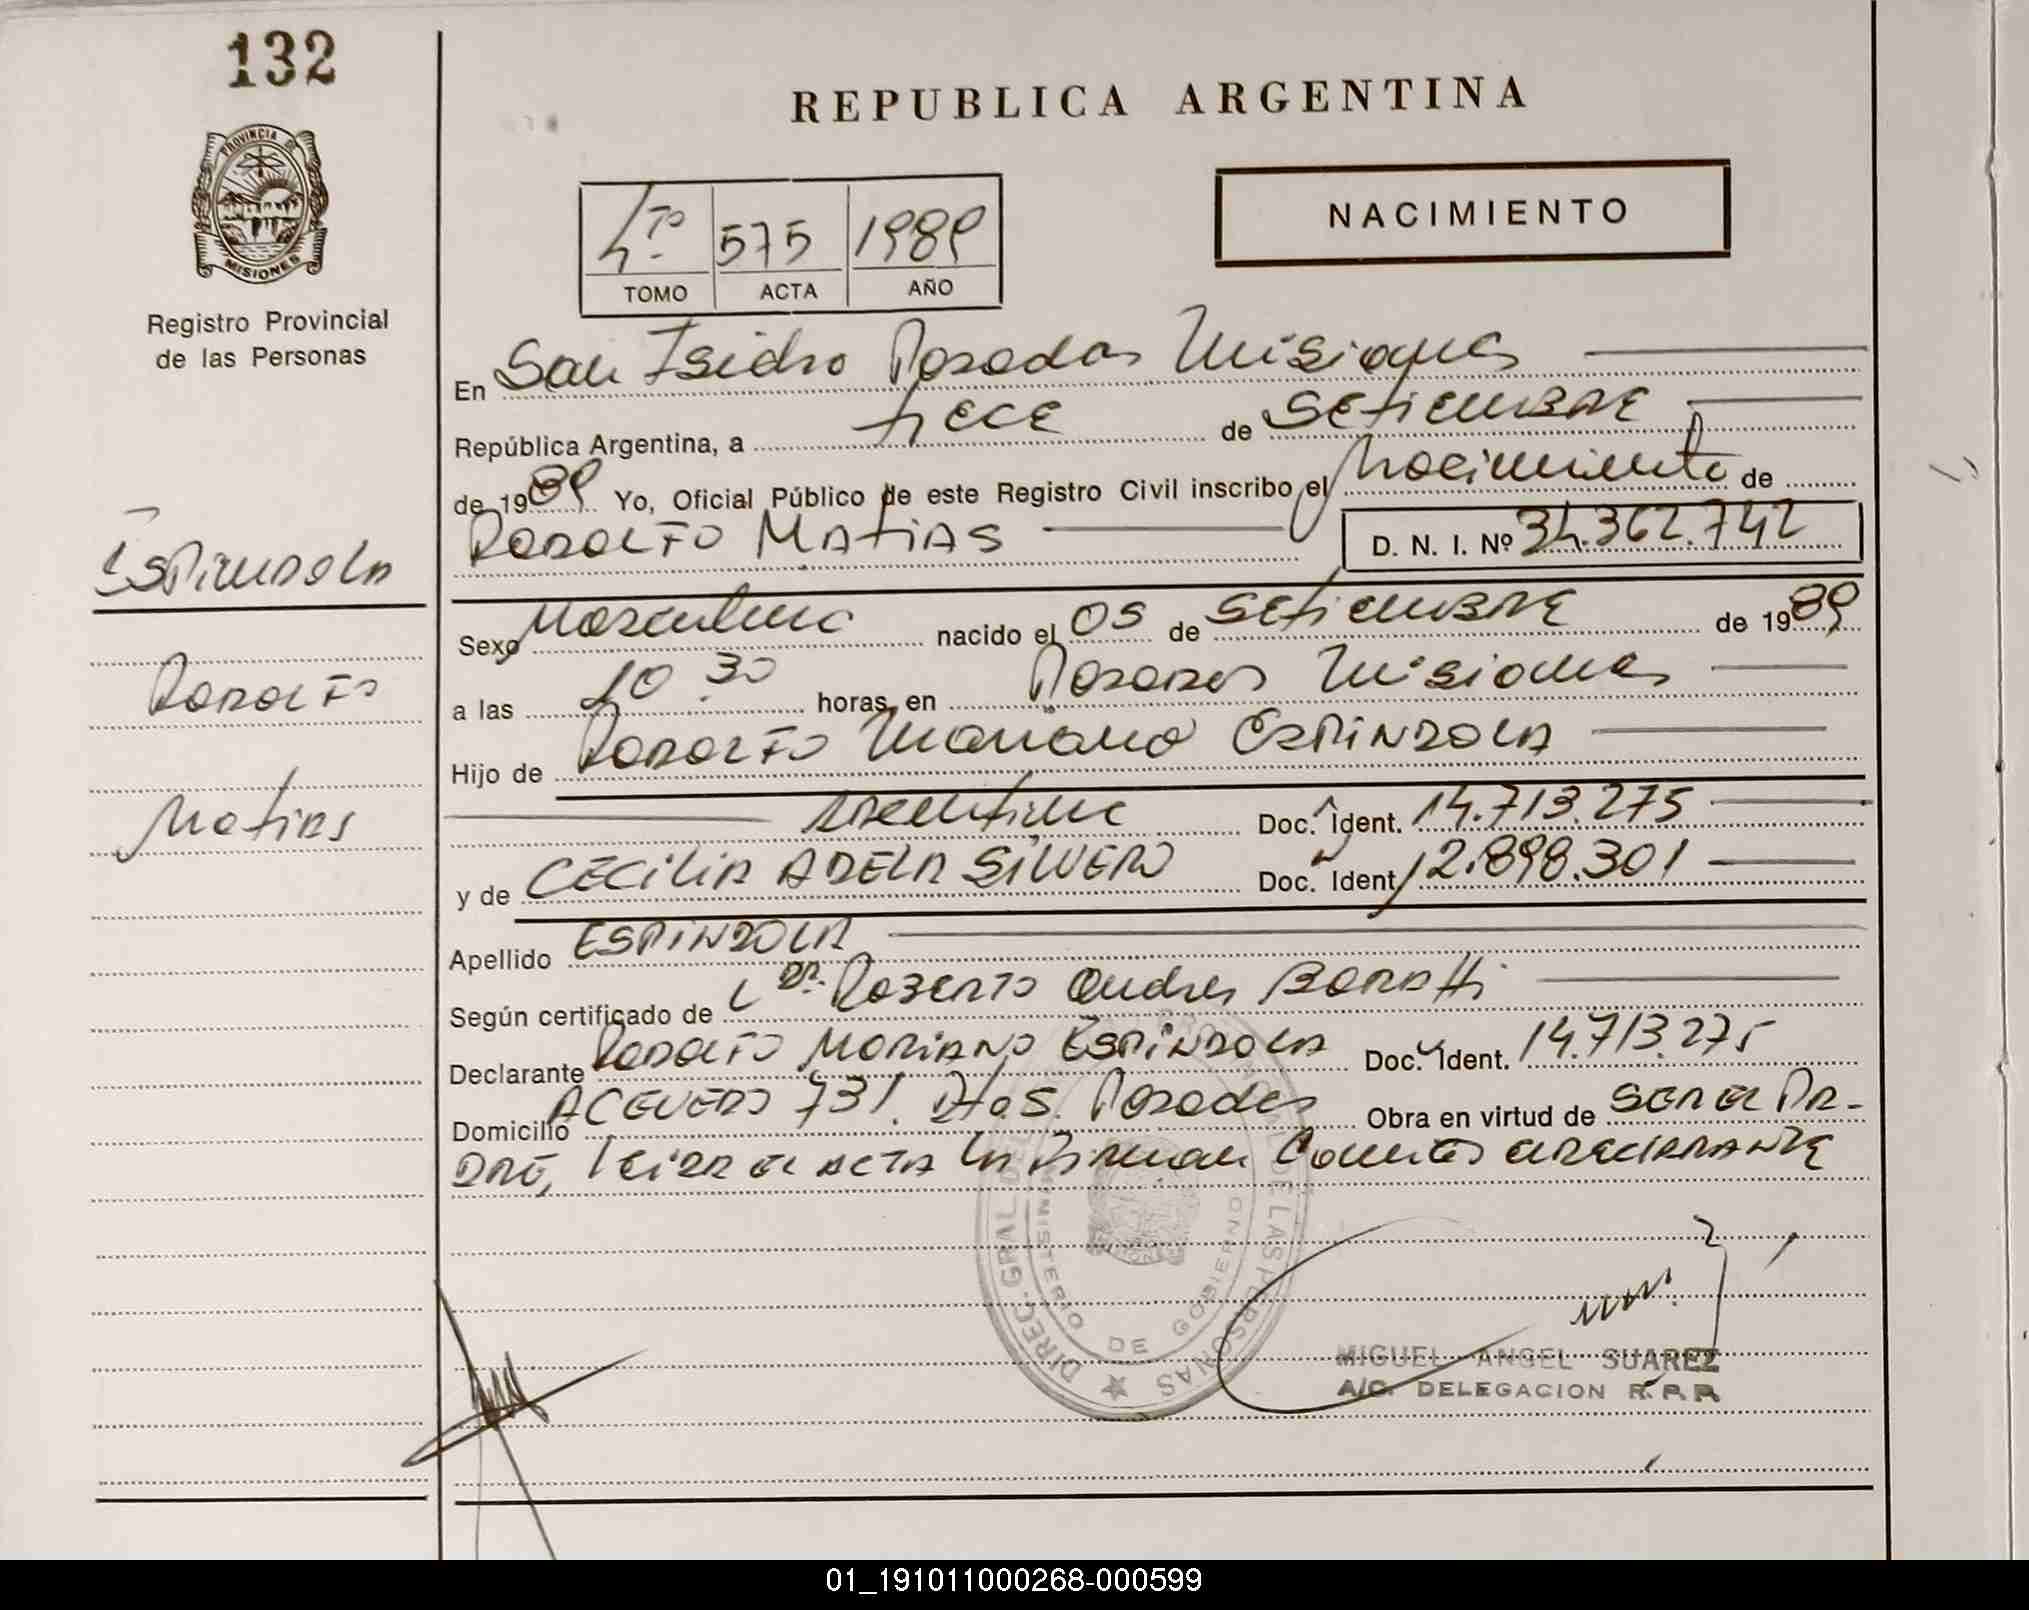 132
PROVINCIA DE
MISIONES
Registro Provincial
de las Personas
REPUBLICA ARGENTINA
NACIMIENTO
4to 575 1989
TOMO ACTA AÑO
En San Isidro Posadas Misiones
República Argentina, a trece de Setiembre
de 1989 Yo, Oficial Público de este Registro Civil inscribo el Nacimiento de
Rodolfo Matias D. N. I. Nº 34.362.742
Espindola
Rodolfo
Matias
Sexo Masculino nacido el 05 de Setiembre de 1989
a las 10.30 horas, en Posadas Misiones
Hijo de Rodolfo Mariano Espindola
Argentino Doc. Ident. 14.713.275
y de Cecilia Adela Silvero Doc. Ident. 12.898.301
Apellido Espindola
Según certificado de Dr. Roberto Andres Boratti
Declarante Rodolfo Mariano Espindola Doc. Ident. 14.713.275
Domicilio Acevedo 731. Posadas Obra en virtud de ser el Pa-
dre, leida el acta la firman Conmigo el declarante
DIREC. GRAL DEL REG. PROVINCIAL DE LAS PERSONAS
MINISTERIO DE GOBIERNO
MIGUEL ANGEL SUAREZ
A/C. DELEGACION R. P. P.
01_191011000268-000599